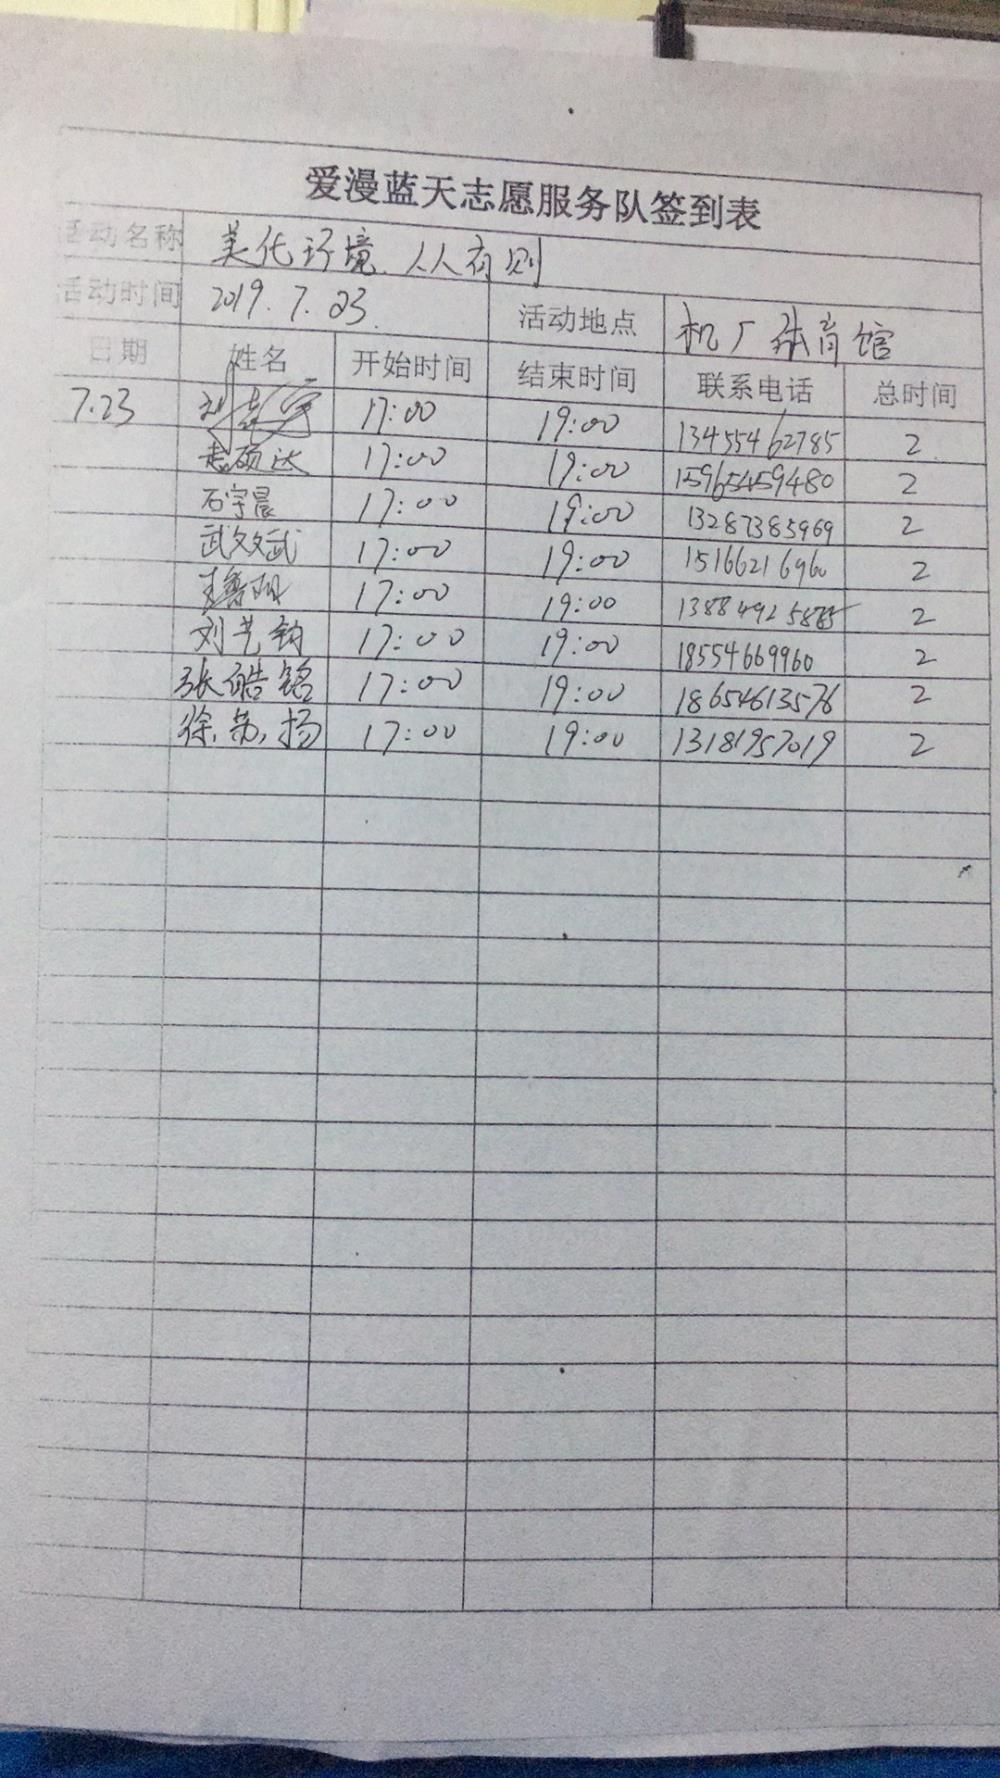 爱漫蓝天志愿服务队签到表
活动名称 美化环境.人人有则
活动时间 2019.7.23. 活动地点 机厂体育馆
日期 姓名 开始时间 结束时间 联系电话 总时间
7.23 17:00 19:00 13455462785 2
硕达 17:00 19:00 15965459480 2
石宇晨 17:00 19:00 13287385969 2
武文斌 17:00 19:00 15166216960 2
17:00 19:00 2
刘艺钧 17:00 19:00 18554669960 2
张皓铭 17:00 19:00 18654613576 2
徐苏扬 17:00 19:00 13181957019 2